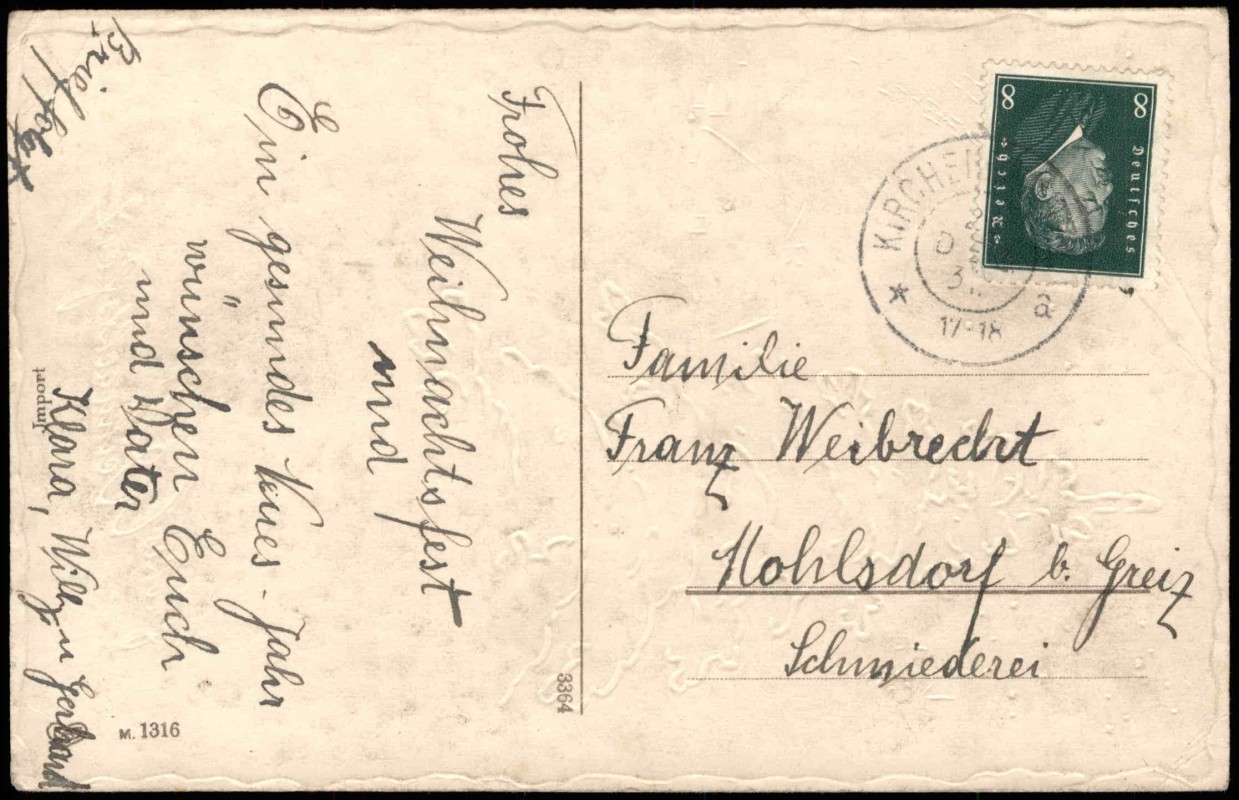 Brief folgt
Frohes
Weihnachtsfest
und
Ein gesundes Neues-Jahr
wünschen Euch
und Vater
Klara, Willy u Gerhard
Import
M. 1316
3364
8 8
Deutsches
Reich
KIRCHHEI
D
3
17-18
a
Familie
Franz Weibrecht
Mohlsdorf b. Greiz
Schmiederei